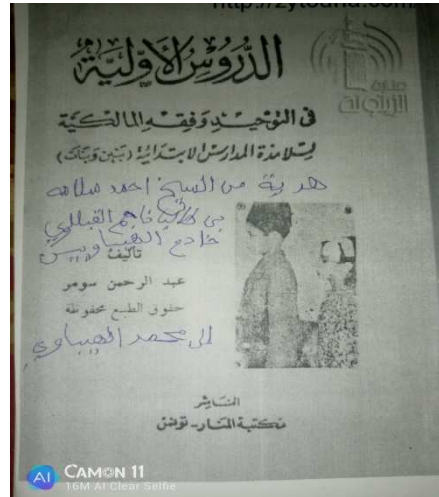 http://zytouna.com/
الدُّرُوسُ الأَوَّلِيَّة
الزيتونة
فى التوحيد وفقه المالكية
لتلامذة المدارس الابتدائية (بنين وبنات)
هدية من الشيخ احمد سلامه
خادم
تأليف
عبد الرحمن سومر
حقوق الطبع محفوظة
الى محمد الهيباوي
الناشر
مكتبة المنار - تونس
AI CAMON 11
16M AI Clear Selfie